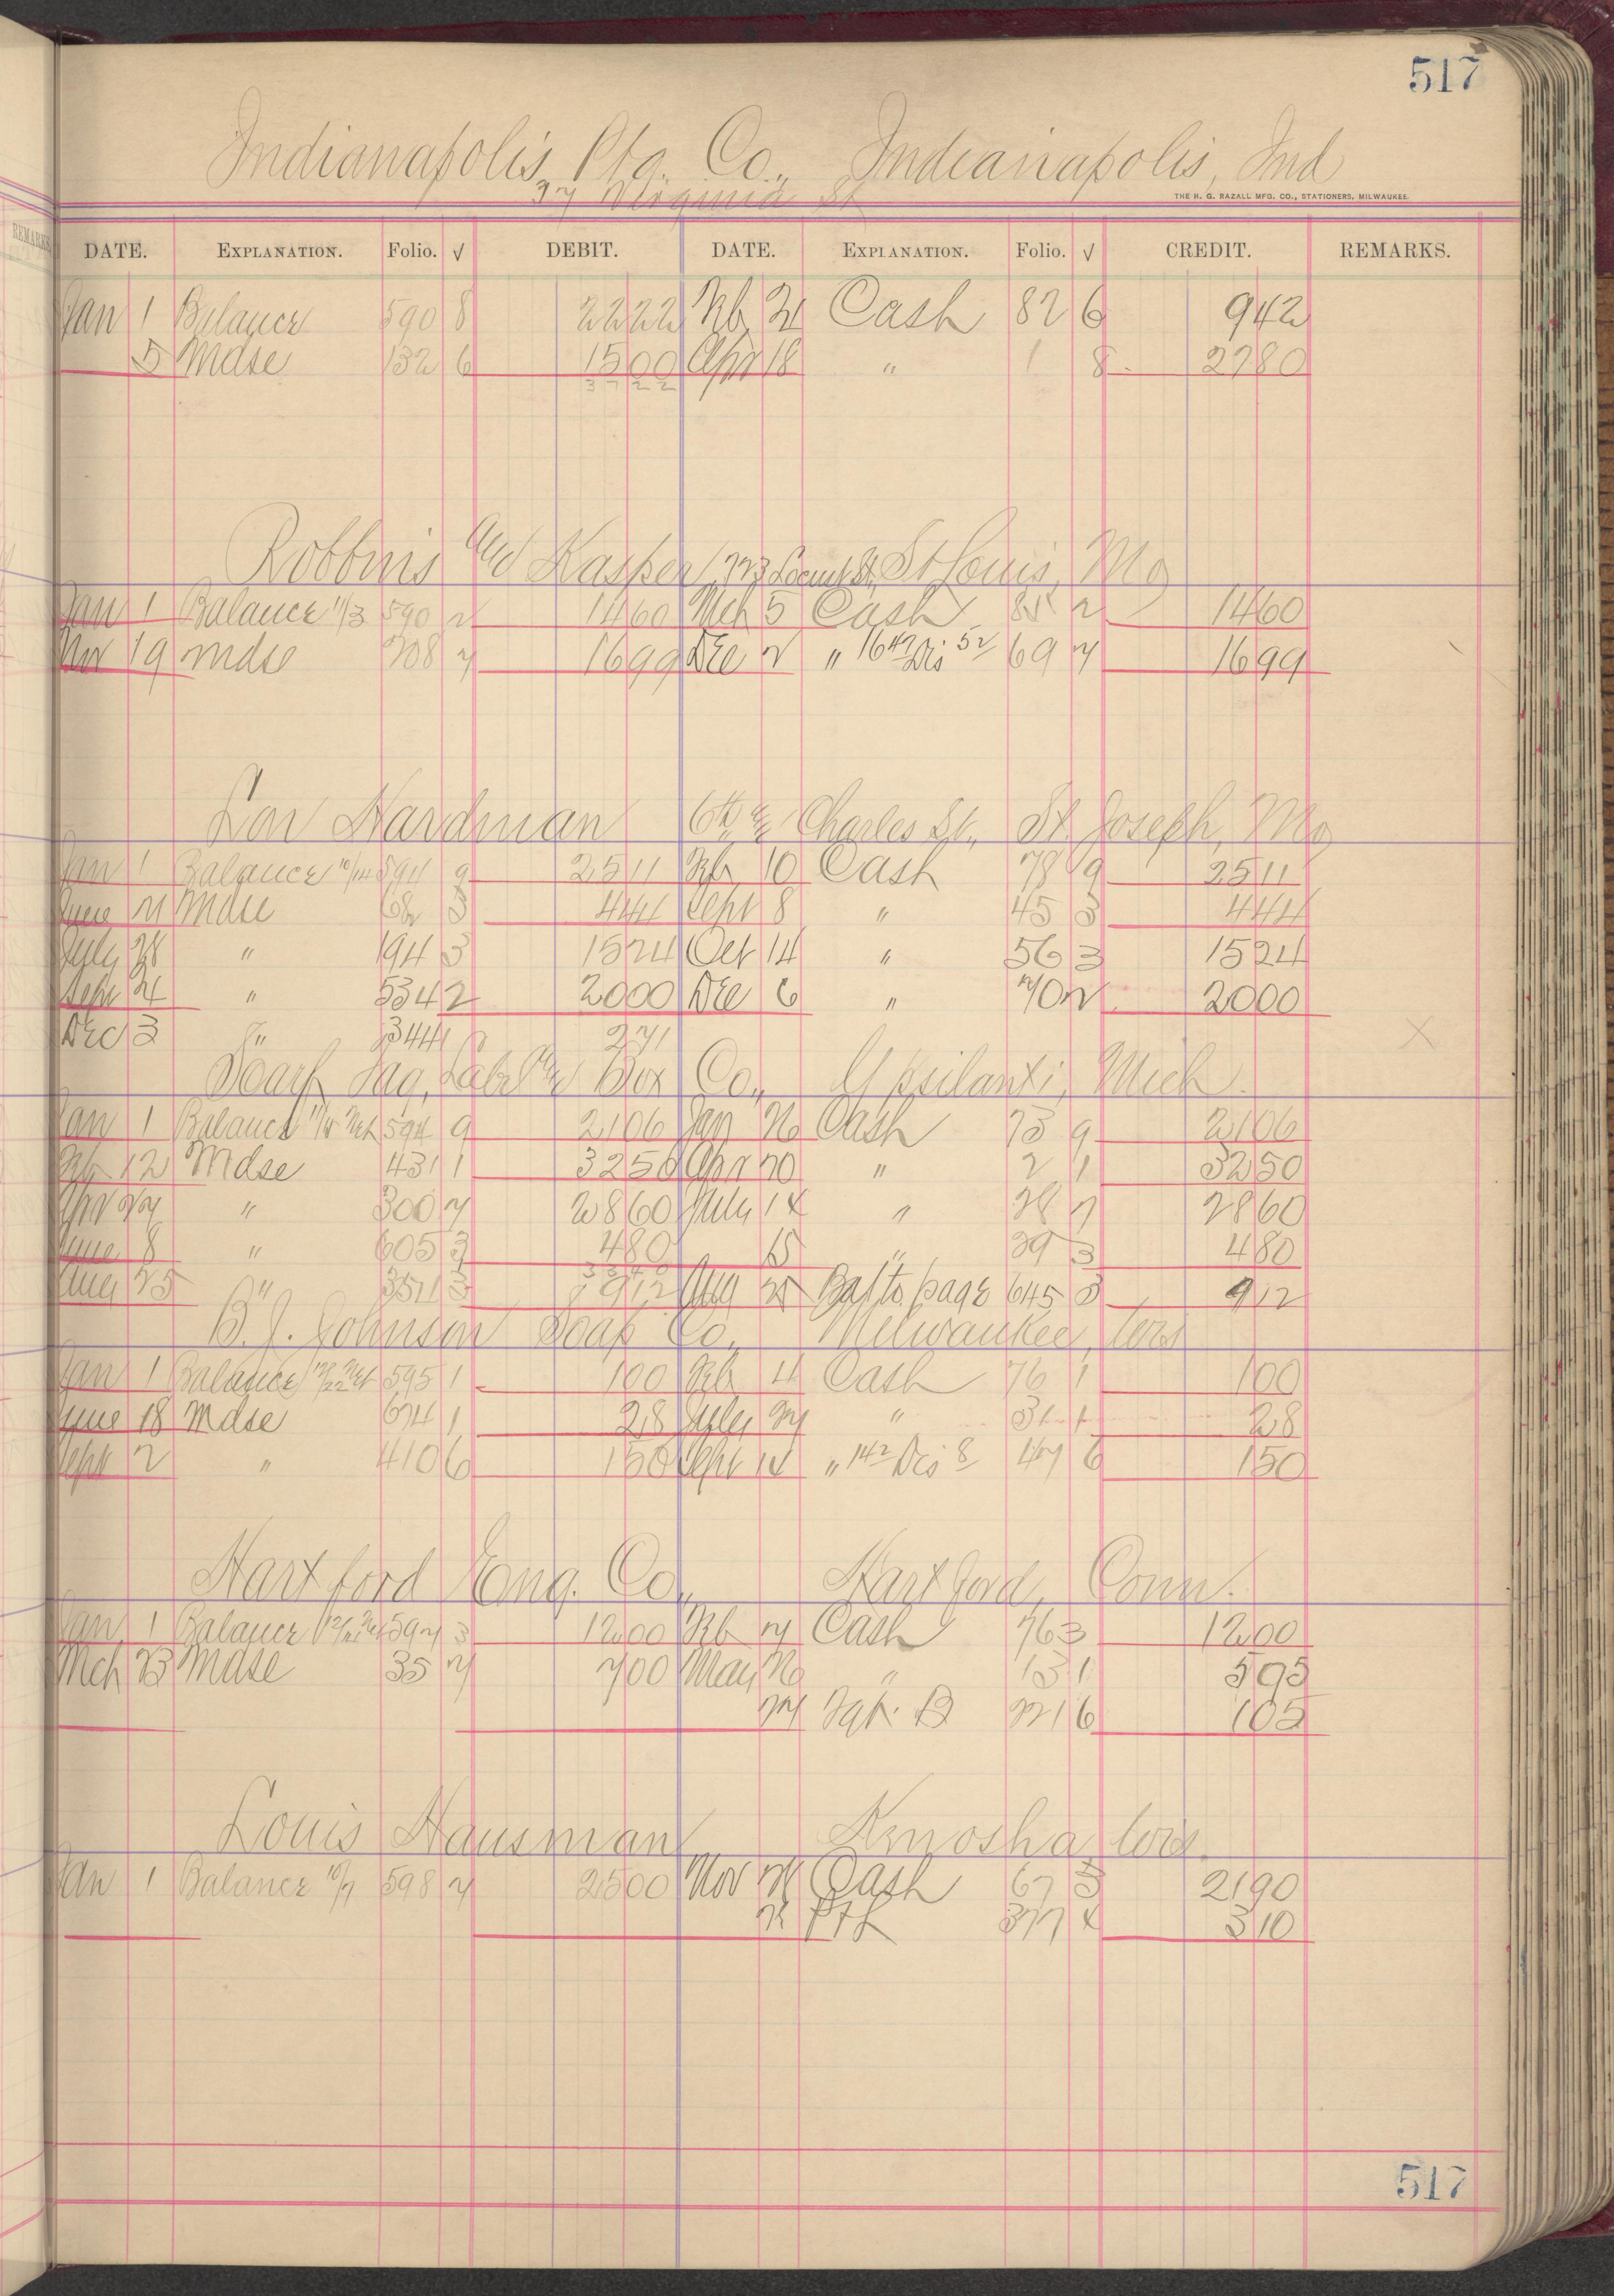 517
Indianapolis Ptg. Co., Indianapolis, Ind
37 Virginia St
THE H. G. RAZALL MFG. CO., STATIONERS, MILWAUKEE.
REMARKS
DATE. EXPLANATION. Folio. √ DEBIT. DATE. EXPLANATION. Folio. √ CREDIT. REMARKS.
Jan 1 Balance 590 8 2222 Feb 21 Cash 82 6 942
5 Mdse 132 6 1500 Apr 18 " 1 8 2780
3722
Robbins and Kasper, 723 Locust St, St Louis, Mo
Jan 1 Balance 11/3 590 2 1460 Mch 5 Cash 85 2 1460
Nov 19 Mdse 208 7 1699 Dec 2 " 1647 Dis 52 69 7 1699
Lon Hardman 6th & Charles St., St. Joseph, Mo
Jan 1 Balance 10/14 594 9 2511 Feb 10 Cash 78 9 2511
June 21 Mdse 62 3 444 Sept 8 " 45 3 444
July 28 " 194 3 1524 Oct 14 " 56 3 1524
Sept 21 " 534 2 2000 Dec 6 " 70 2 2000
Dec 3 " 344 271
Scarf Tag, Label and Box Co., Ypsilanti, Mich.
Jan 1 Balance 594 9 2106 Jan 26 Cash 73 9 2106
Feb 12 Mdse 431 1 3250 Apr 20 " 2 1 3250
Apr 27 " 300 7 2860 July 14 " 28 7 2860
June 8 " 605 3 480 15 " 29 3 480
3340
Aug 25 " 351 3 912 Aug 25 Bal to page 645 3 912
B. J. Johnson Soap Co., Milwaukee, Wis
Jan 1 Balance 12/22 Net 595 1 100 Feb 4 Cash 76 1 100
June 18 Mdse 674 1 28 July 27 " 31 1 28
Sept 2 " 410 6 150 Sept 14 " 142 Dis 8 47 6 150
Hartford Eng. Co., Hartford, Conn.
Jan 1 Balance 597 3 1200 Feb 7 Cash 76 3 1200
Mch 23 Mdse 35 7 700 May 26 " 13 1 595
27 B 221 6 105
Louis Hausman Kenosha, Wis.
Jan 1 Balance 10/7 598 7 2500 Nov 21 Cash 67 3 2190
P&L 377 4 310
517